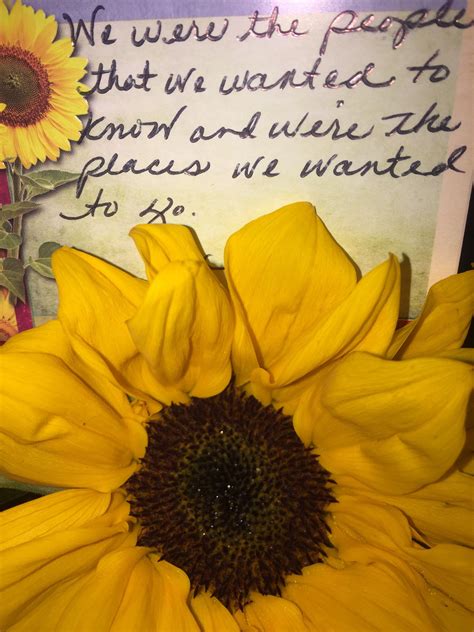 We were the people
that we wanted to
know and we're the
places we wanted
to go.